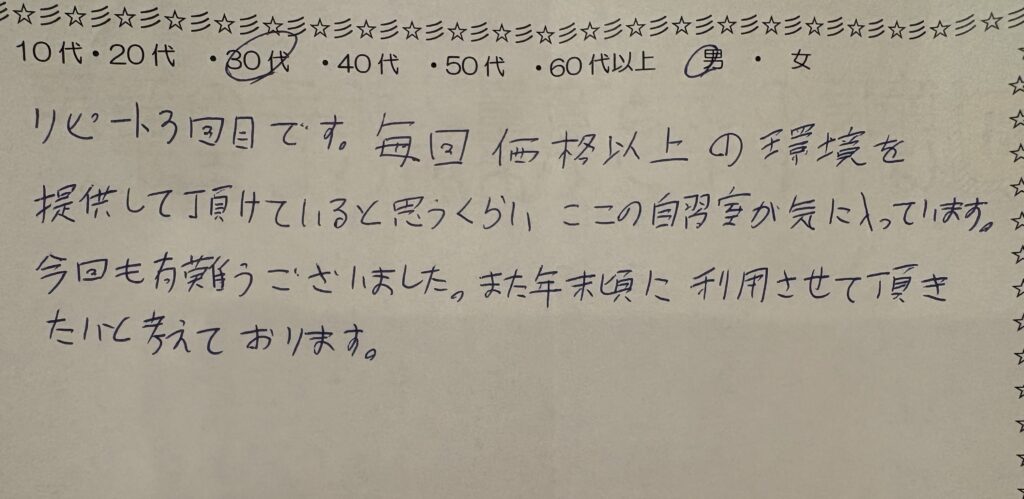 10代・20代 ・30代 ・40代 ・50代 ・60代以上 男 ・ 女
リピート3回目です。毎回 価格以上の環境を
提供して頂けていると思うくらい ここの自習室が気に入っています。
今回も有難うございました。また年末頃に 利用させて頂き
たいと考えております。